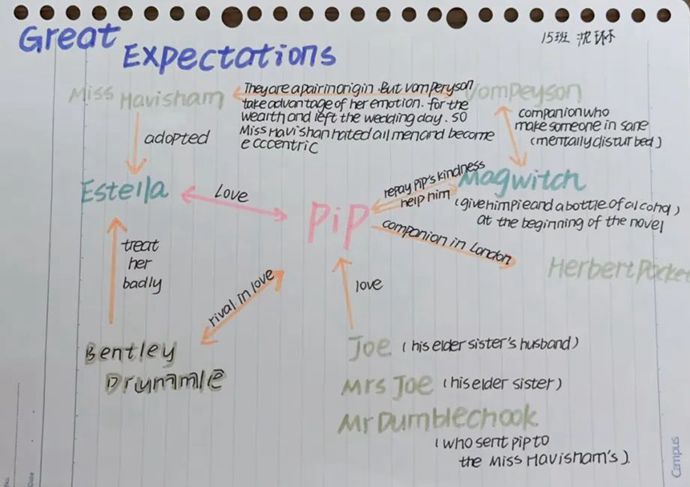 Great Expectations
15班 沈环
Miss Havisham
They are a pair in origin. But vomperyson
take advantage of her emotion. for the
wealth and left the wedding day. so
Miss Havishan hated all men and become
ecccentric
Vompeyson
adopted
companion who
make someone in sane
(mentally disturbed)
Estella
Love
Pip
repay pip's kindness
help him
Magwitch
(give him pie and a bottle of alcohol)
at the beginning of the novel
companion in London
Herbert Pocket
treat
her
badly
rival in love
love
Bentley
Drummle
Joe (his elder sister's husband)
Mrs Joe (his elder sister)
Mr Dumblechook
(who sent pip to
the Miss Havisham's).
No.
Date
Campus